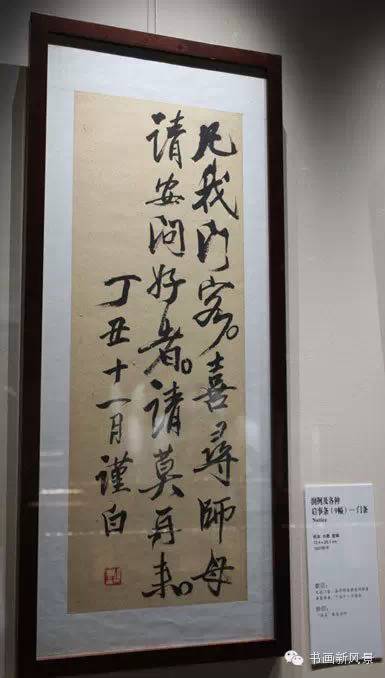 凡我门客。喜尋師母
請安问好者。請莫再来。
丁丑十一月謹白
润例及各种
启事条（9幅）—门条
Notice
书画新风景